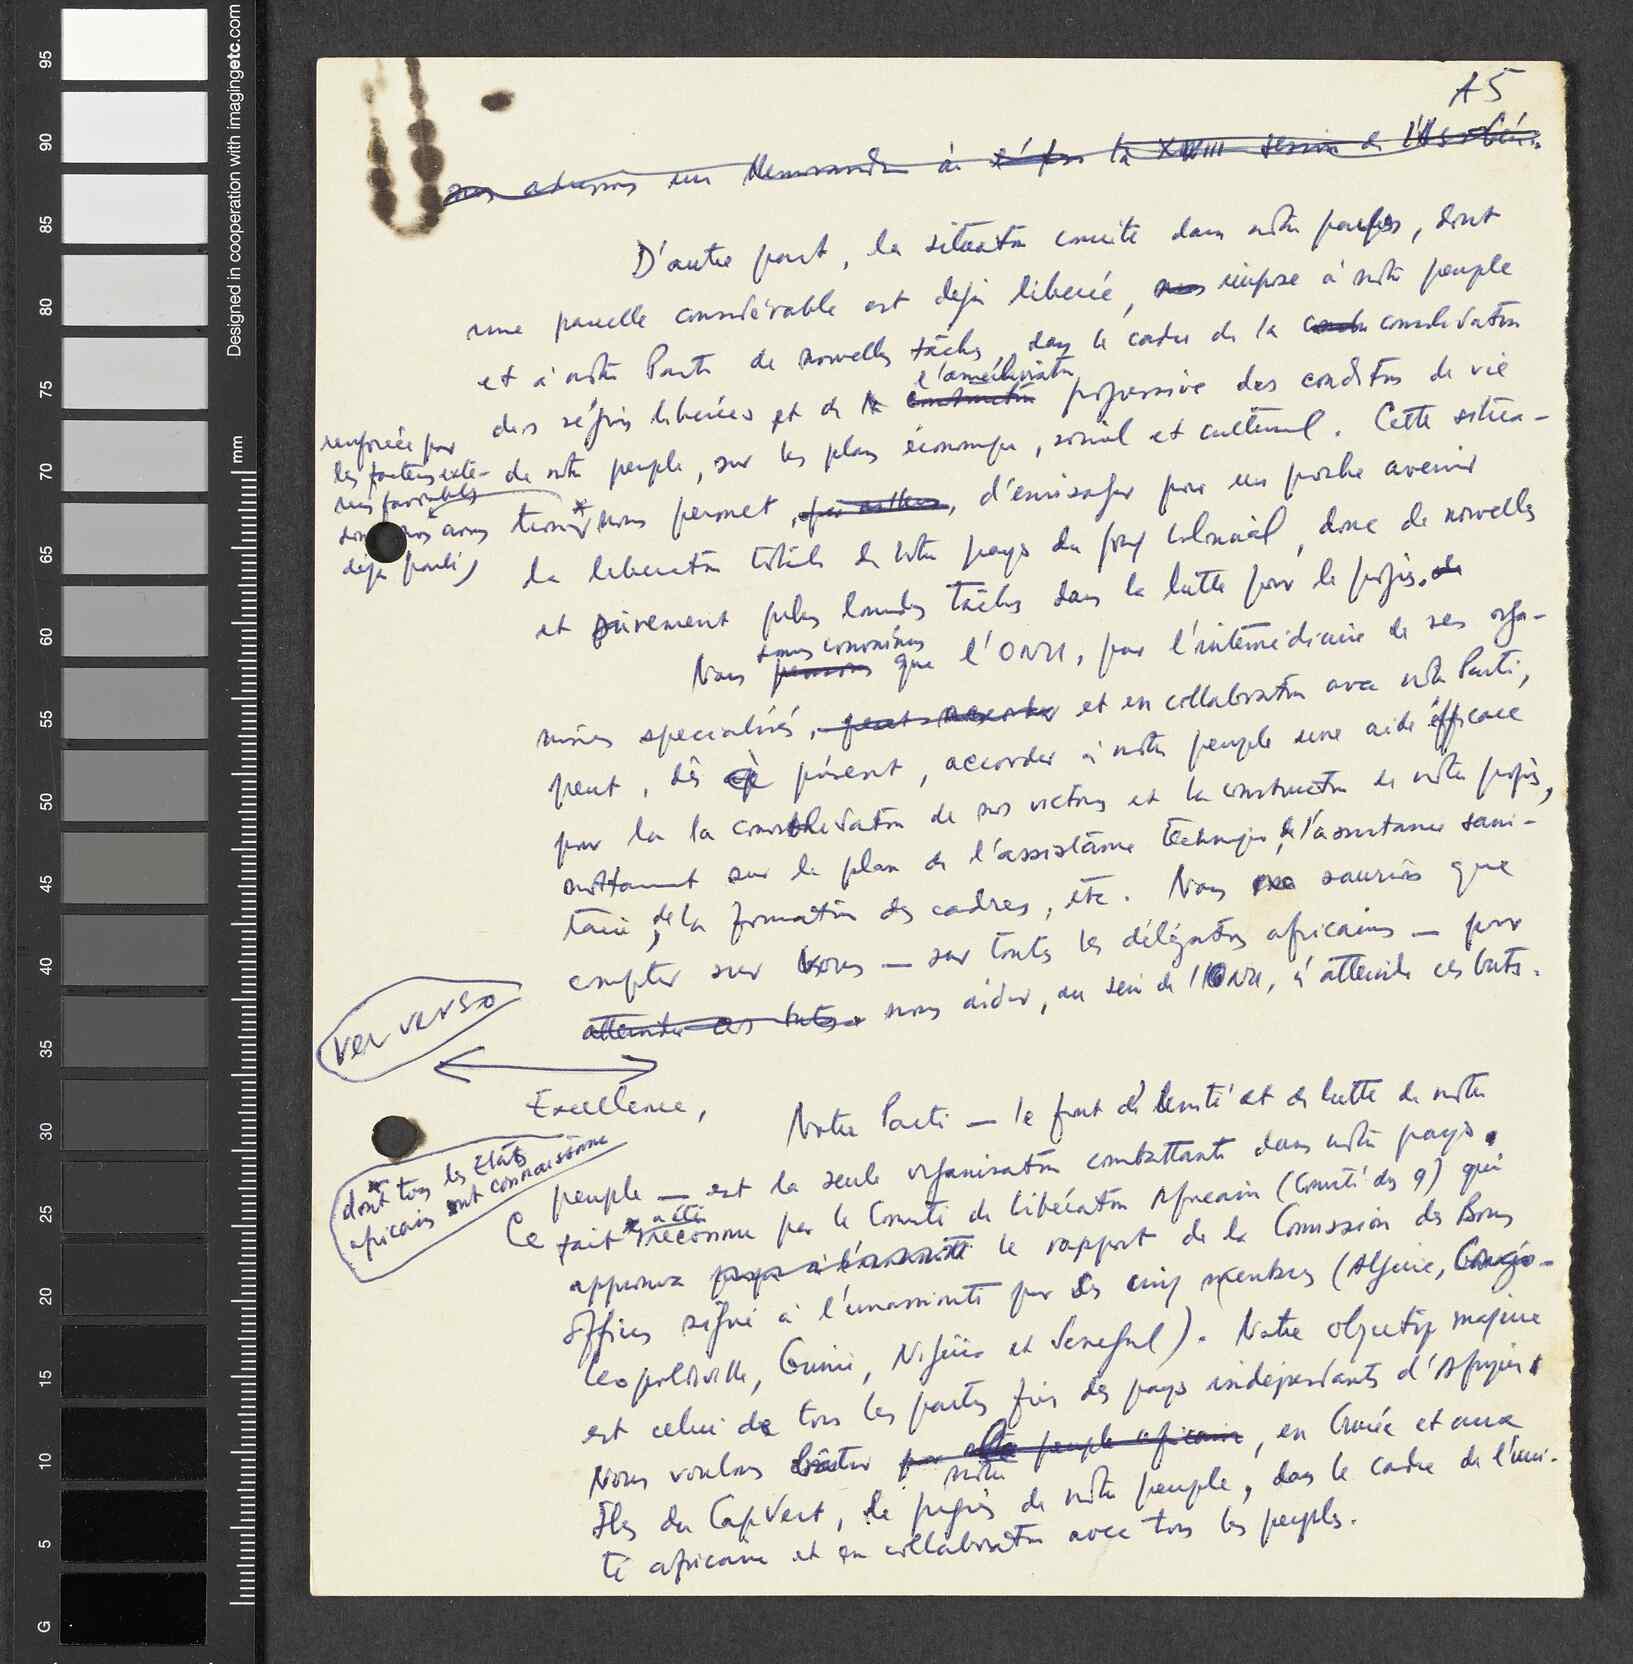 A5
nous adressons un Memorandum à la XVIII session de l'Ass. Gén.
D'autre part, la situation concrète dans notre pays, dont
une parcelle considérable est déjà liberée, nous impose à notre peuple
et à notre Parti de nouvelles tâches, dans le cadre de la consolidation
l'amélioration
des régions liberées et de la construction progressive des conditions de vie
de notre peuple, sur les plans économique, social et culturel. Cette situa-
renforcée par
les facteurs exté-
rieurs favorables
dont nous avons
déjà parlé,
tion * nous permet, d'envisager pour un proche avenir
la liberation totale de notre pays du joug colonial, donc de nouvelles
et sûrement plus lourdes tâches dans la lutte pour le progrès. de
sommes convaincus
Nous pensons que l'ONU, par l'intermédiaire de ses orga-
nismes specialisés, et en collaboration avec notre Parti,
peut, dès à présent, accorder à notre peuple une aide éfficace
pour la la consolidation de nos victoires et la construction de notre progrès,
nottamment sur le plan de l'assistance technique, de l'assistance sani-
taire, de la formation des cadres, etc. Nous savons que
compter sur vous — sur toutes les délégations africaines — pour
atteindre ces buts nous aider, au sein de l'ONU, à atteindre ces buts.
ver verso
Excellence,
Notre Parti — le front d'unité et de lutte de notre
dont tous les Etats
africains ont connaissance
peuple — est la seule organisation combattante dans notre pays.
Ce fait * reconnu par le Comité de Libération Africain (Comité des 9) qui
approuva jusqu'à l'unanimité le rapport de la Comission des Bons
Offices signé à l'unanimité par les cinq membres (Algérie, Congo-
Leopoldville, Guinée, Nigéria et Senegal). Notre objectif majeur
est celui de tous les partis fiers des pays indépendants d'Afrique.
Nous voulons bâtir peuple africain, en Guinée et aux
notre
Îles du Cap Vert, le progrès de notre peuple, dans le cadre de l'uni-
té africaine et en collaboration avec tous les peuples.
Designed in cooperation with imagingetc.com
mm
95
90
85
80
75
70
65
60
55
50
45
40
35
30
25
20
15
10
5
G